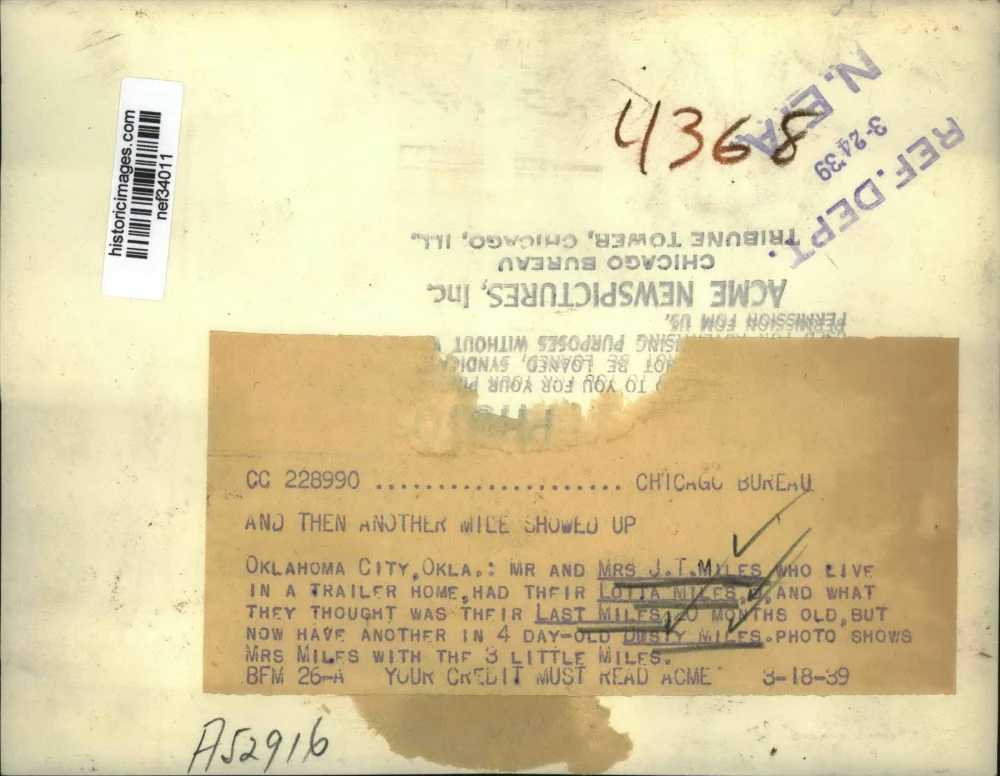 historicimages.com
nef34011
4368
N. E. A.
3-24-39
REF. DEPT.
TRIBUNE TOWER, CHICAGO, ILL.
CHICAGO BUREAU
ACME NEWSPICTURES, Inc.
PERMISSION FOM US.
SING PURPOSES WITHOUT
NOT BE LOANED, SYNDIC
TO YOU FOR YOUR
CC 228990 ..................... CHICAGO BUREAU
AND THEN ANOTHER MILE SHOWED UP
OKLAHOMA CITY, OKLA.: MR AND MRS J.T.MILES WHO LIVE
IN A TRAILER HOME, HAD THEIR LOTTA MILES, ,AND WHAT
THEY THOUGHT WAS THEIR LAST MILES, 20 MONTHS OLD, BUT
NOW HAVE ANOTHER IN 4 DAY-OLD DUSTY MILES. PHOTO SHOWS
MRS MILES WITH THE 3 LITTLE MILES.
BFM 26-A YOUR CREDIT MUST READ ACME 3-18-39
A52916